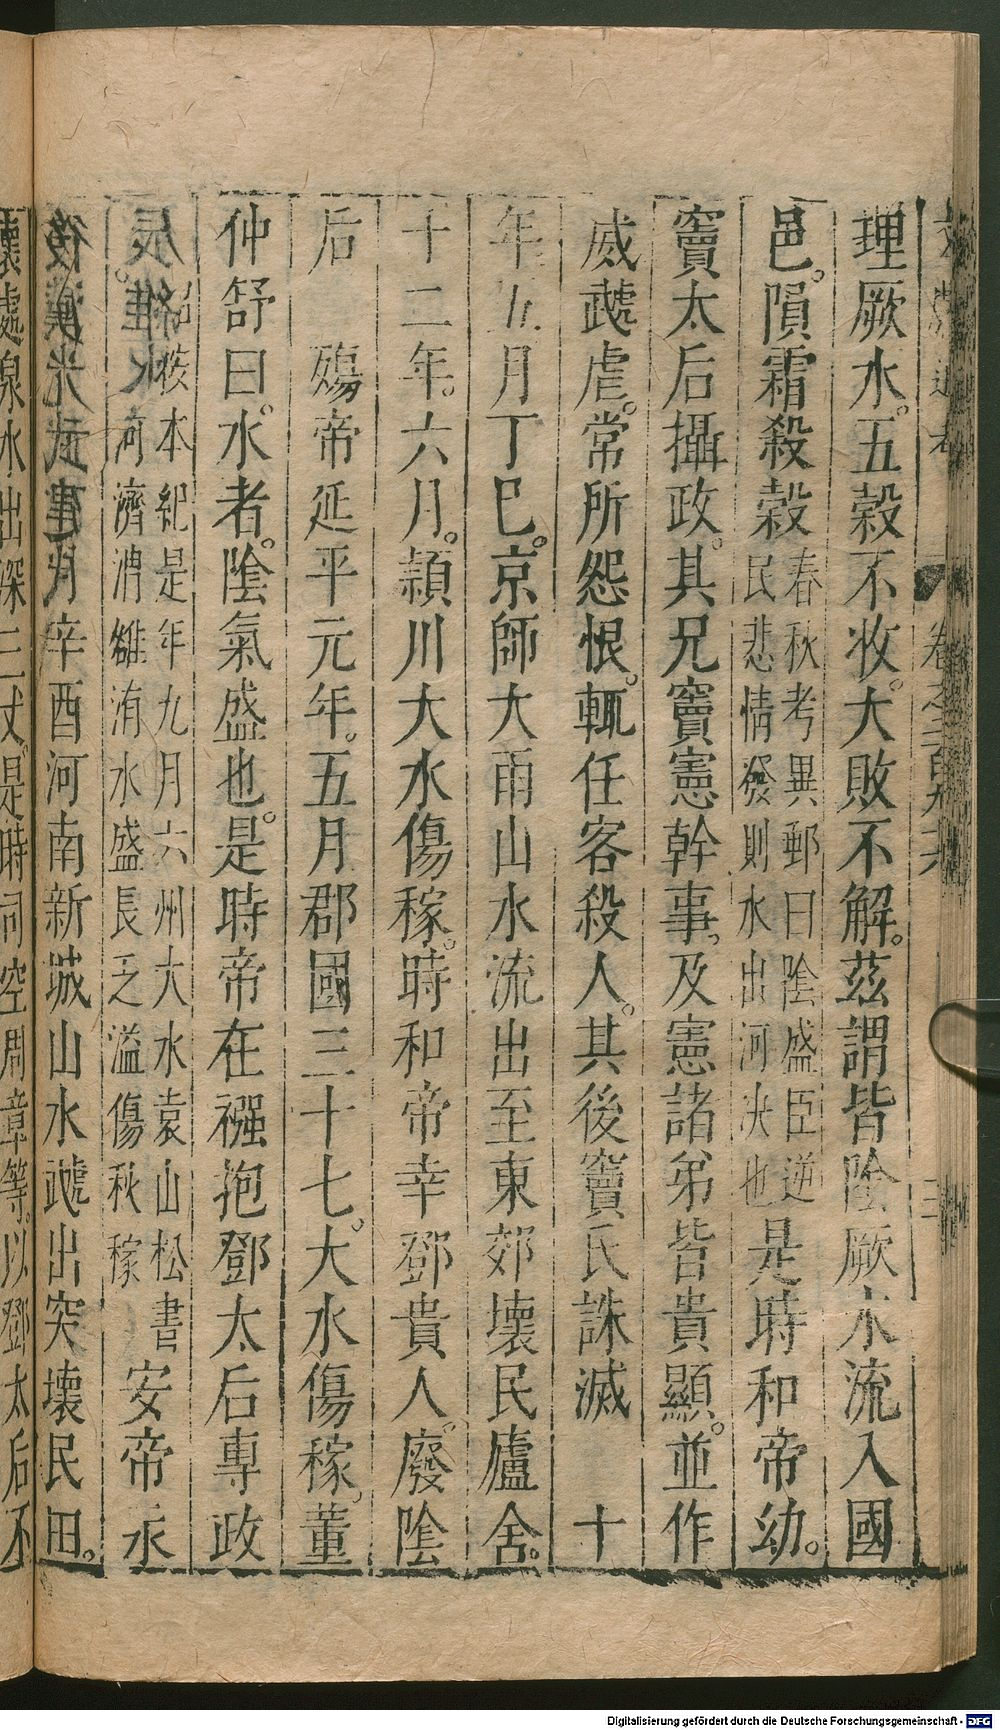 理厥水。五穀不收。大敗不解。茲謂皆陰厥水流入國
邑。隕霜殺穀
春秋考異郵曰陰盛臣逆
民悲情發則水出河決也
是時和帝幼。
竇太后攝政。其兄竇憲幹事。及憲諸弟皆貴顯。並作
威虣虐。常所怨恨。輒任客殺人。其後竇氏誅滅 十
年五月丁巳。京師大雨山水流出至東郊壞民廬舍。
十二年。六月。潁川大水傷稼。時和帝幸鄧貴人。廢陰
后 殤帝延平元年。五月郡國三十七。大水傷稼。董
仲舒曰。水者。陰氣盛也。是時帝在襁抱鄧太后專政
按本紀是年九月六州大水袁山松書
河濟渭雒洧水盛長泛溢傷秋稼
安帝永
辛酉河南新城山水虣出突壞民田。
壞處泉水出深三丈。是時司空周章等。以鄧太后不